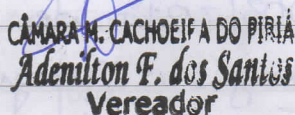 CÂMARA M. CACHOEIRA DO PIRIÁ
Adenilton F. dos Santos
Vereador